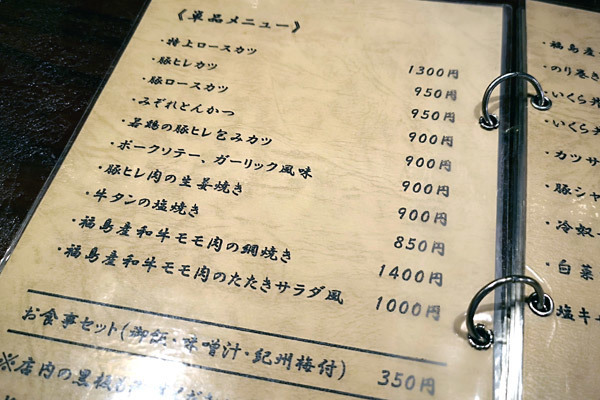 《単品メニュー》
・特上ロースカツ 1300円
・豚ヒレカツ 950円
・豚ロースカツ 950円
・みぞれとんかつ 900円
・若鶏の豚ヒレ包みカツ 900円
・ポークソテー、ガーリック風味 900円
・豚ヒレ肉の生姜焼き 900円
・牛タンの塩焼き 850円
・福島産和牛モモ肉の網焼き 1400円
・福島産和牛モモ肉のたたきサラダ風 1000円
お食事セット(御飯・味噌汁・紀州梅付) 350円
※店内の黒板
・福島産
・のり巻き
・いくら
・いくら
・カツサ
・豚シャ
・冷奴
・白菜
・塩キ